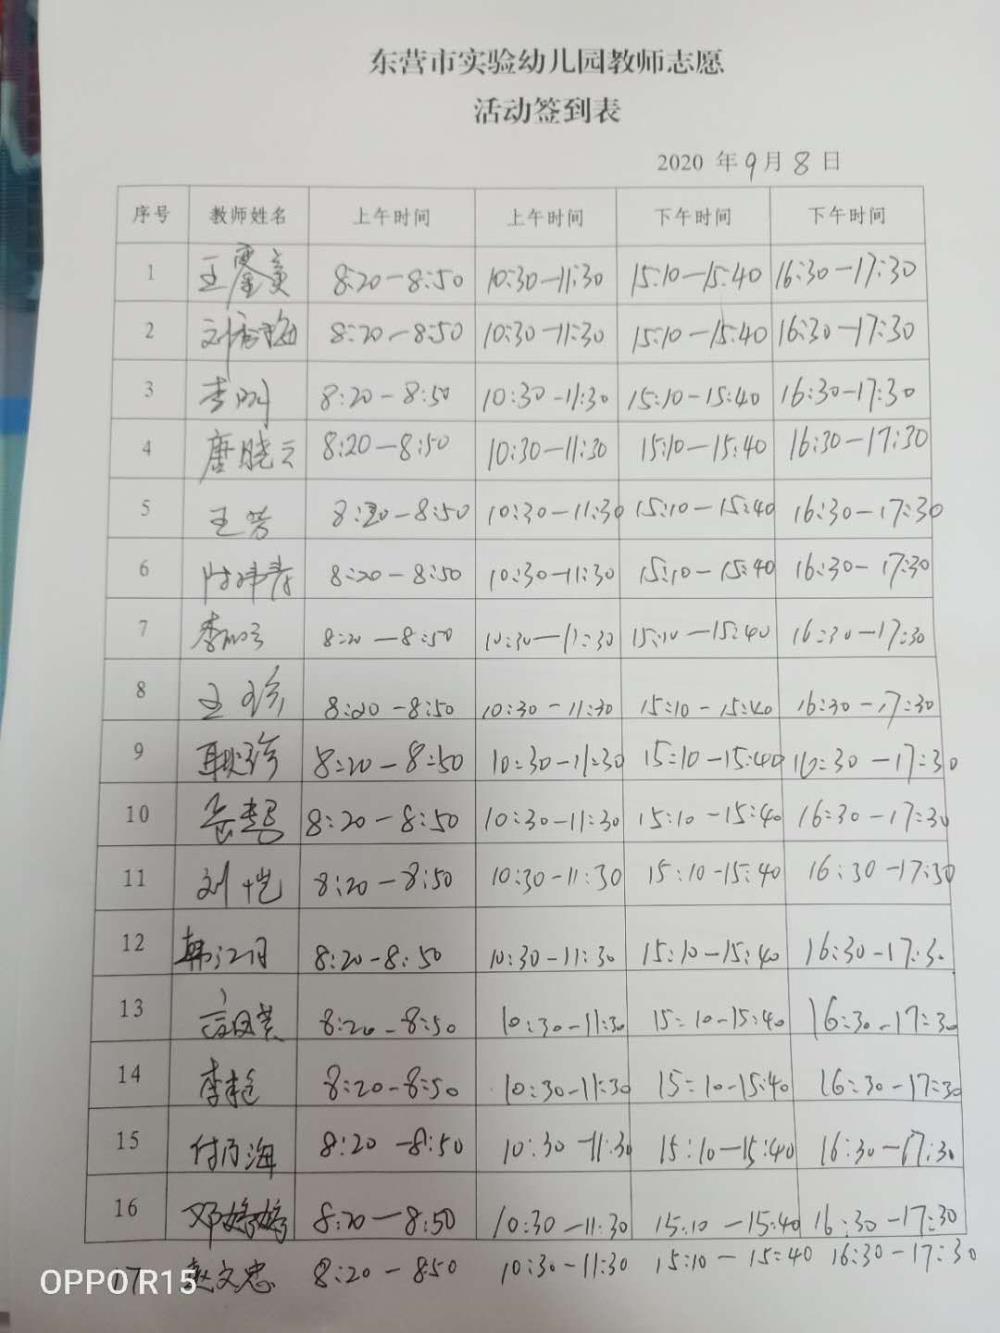 东营市实验幼儿园教师志愿
活动签到表
2020 年 9 月 8 日
序号 教师姓名 上午时间 上午时间 下午时间 下午时间
1 王 8:20-8:50 10:30-11:30 15:10-15:40 16:30-17:30
2 刘 8:20-8:50 10:30-11:30 15:10-15:40 16:30-17:30
3 李 8:20-8:50 10:30-11:30 15:10-15:40 16:30-17:30
4 唐晓云 8:20-8:50 10:30-11:30 15:10-15:40 16:30-17:30
5 王芳 8:20-8:50 10:30-11:30 15:10-15:40 16:30-17:30
6 8:20-8:50 10:30-11:30 15:10-15:40 16:30-17:30
7 李 8:20-8:50 10:30-11:30 15:10-15:40 16:30-17:30
8 王 8:20-8:50 10:30-11:30 15:10-15:40 16:30-17:30
9 耿 8:20-8:50 10:30-11:30 15:10-15:40 16:30-17:30
10 8:20-8:50 10:30-11:30 15:10-15:40 16:30-17:30
11 刘恺 8:20-8:50 10:30-11:30 15:10-15:40 16:30-17:30
12 韩江月 8:20-8:50 10:30-11:30 15:10-15:40 16:30-17:30
13 8:20-8:50 10:30-11:30 15:10-15:40 16:30-17:30
14 李艳 8:20-8:50 10:30-11:30 15:10-15:40 16:30-17:30
15 付乃海 8:20-8:50 10:30-11:30 15:10-15:40 16:30-17:30
16 邓婷婷 8:20-8:50 10:30-11:30 15:10-15:40 16:30-17:30
17 赵文忠 8:20-850 10:30-11:30 15:10-15:40 16:30-17:30
OPPO R15